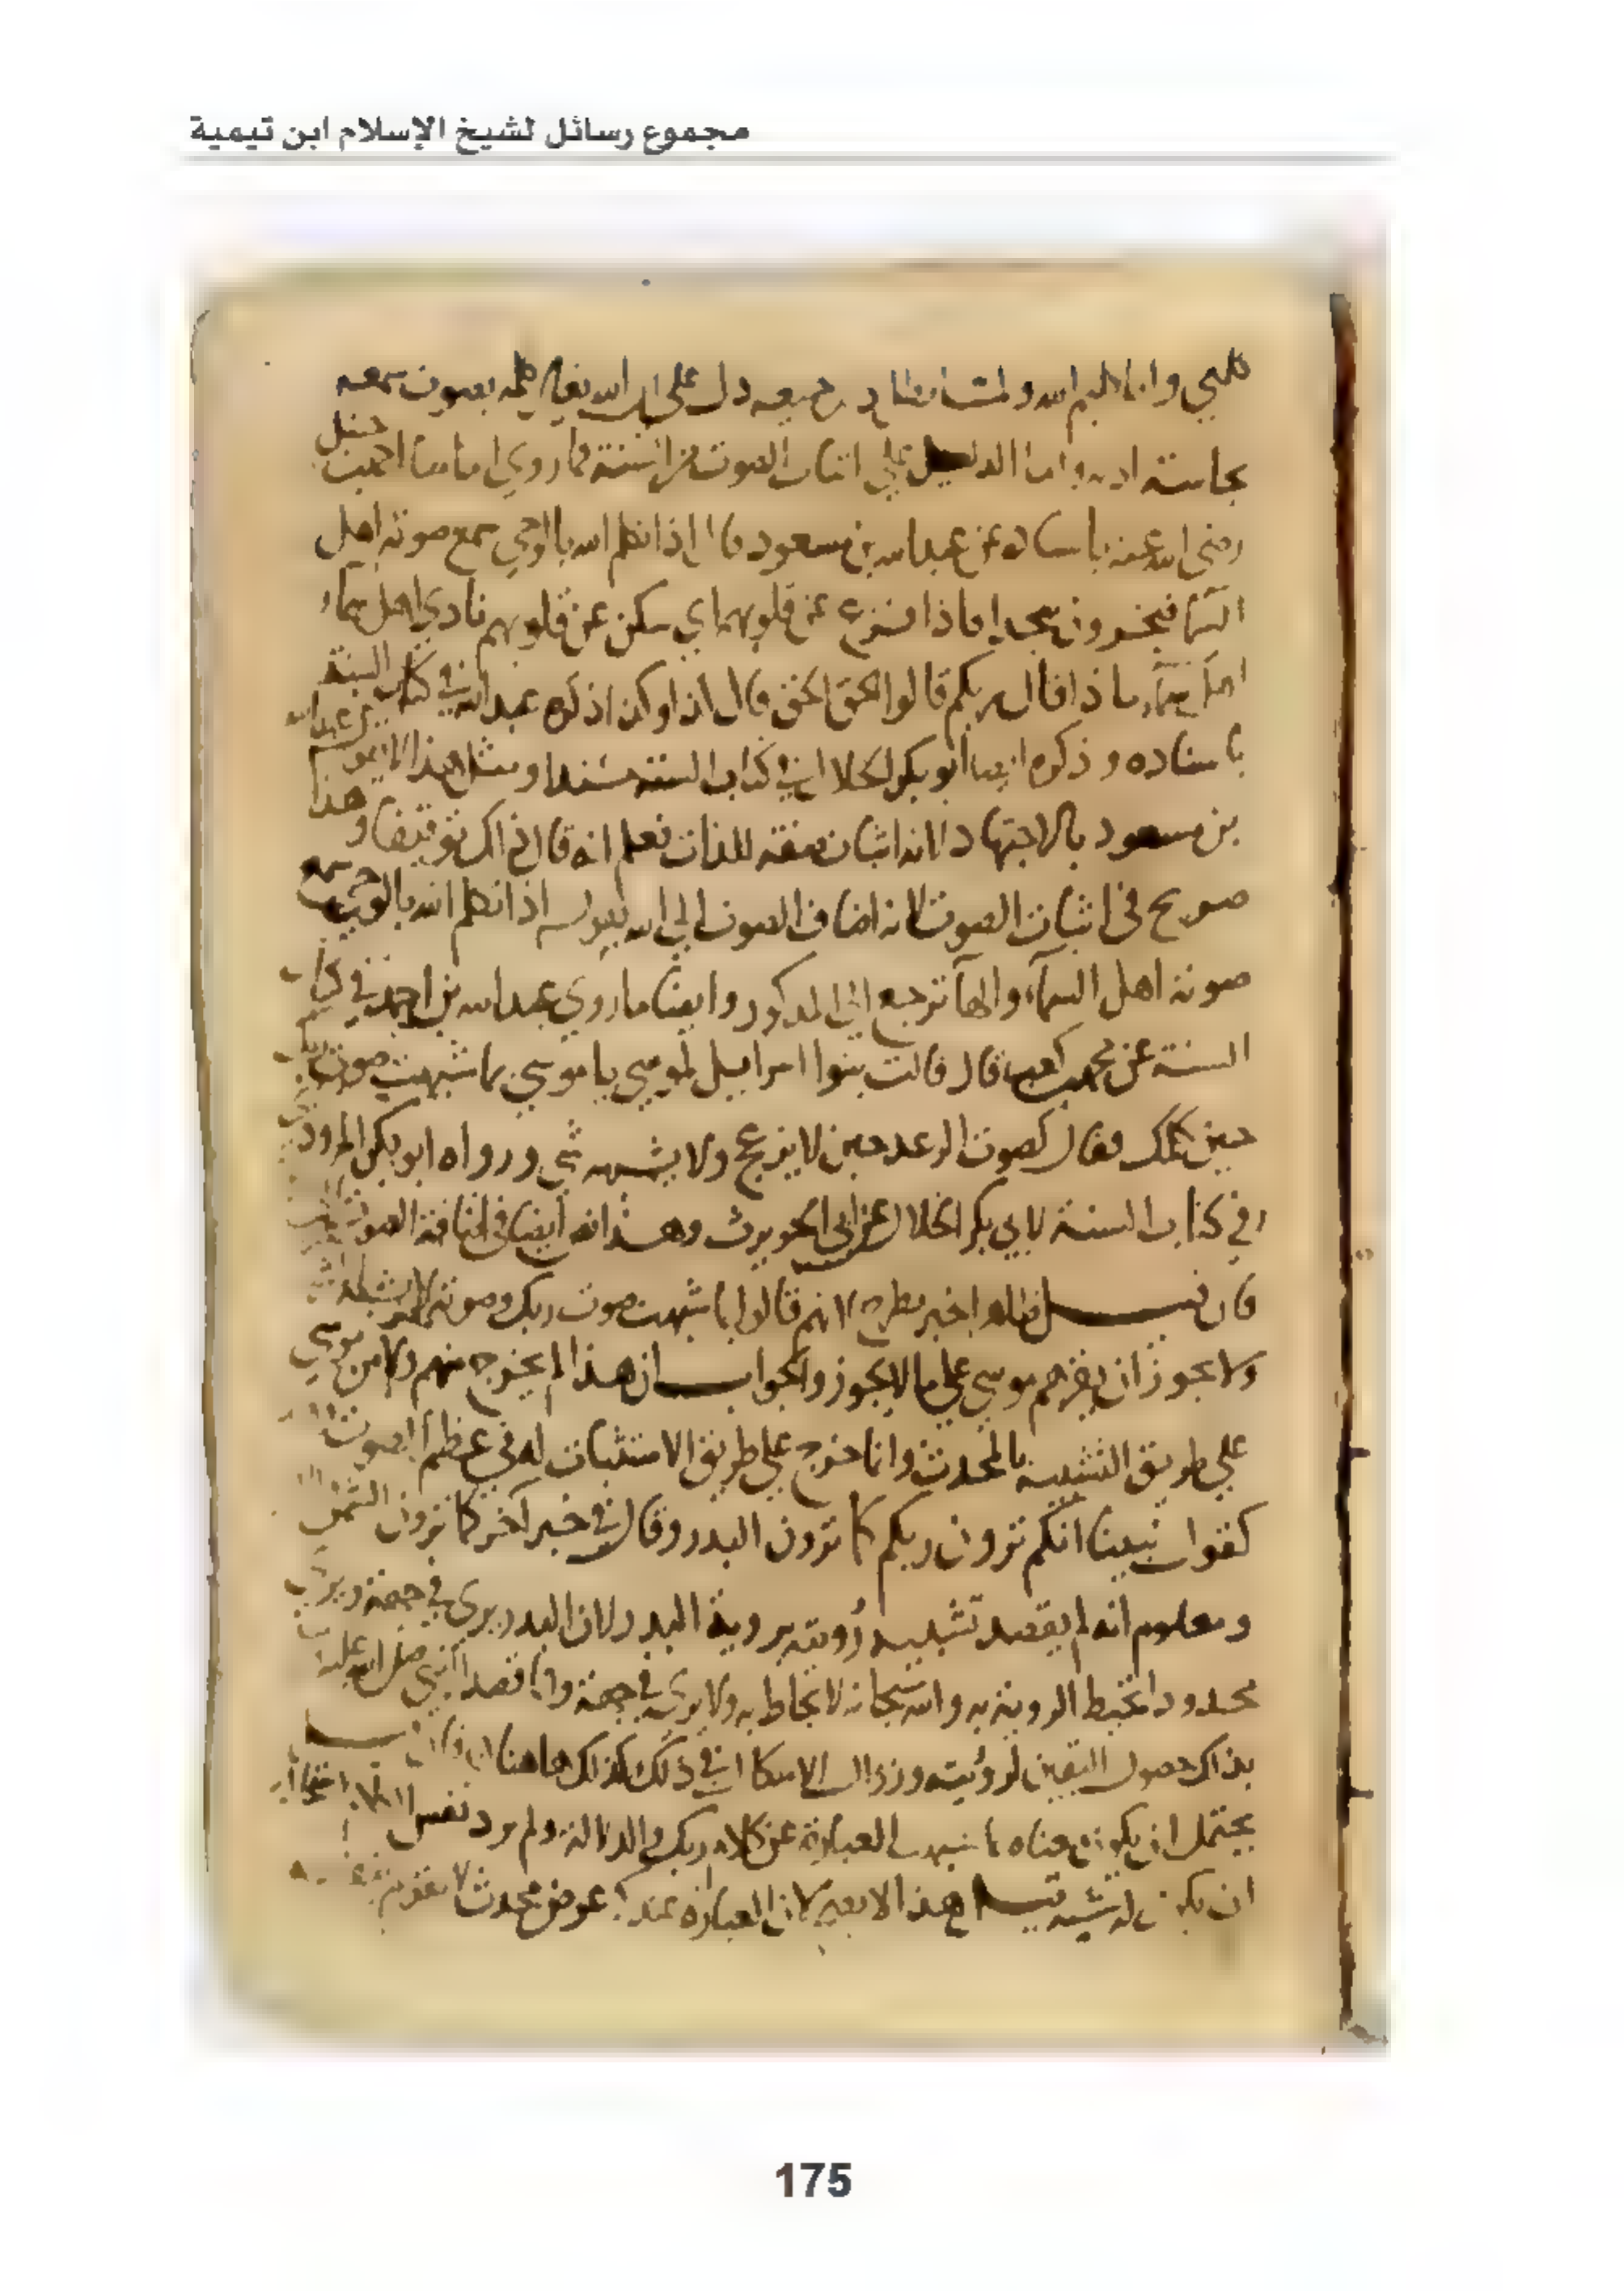 مجموع رسائل لشيخ الإسلام ابن تيمية
دل على ان الله تعالى كلمه بصوت سمعه
بحاسة اذنه واما الدليل على اثبات الصوت من السنة فما روى امامنا احمد بن حنبل
رضى الله عنه باسناده عن عبد الله بن مسعود قال اذا تكلم الله بالوحي سمع صوته اهل
السما فيخرون سجدا فاذا فزع عن قلوبهم اي سكن عن قلوبهم نادي اهل سماء
اهل سماء ماذا قال ربكم قالوا الحق الحق قال كذا وكذا ذكره عبد الله في كتاب السنة
باسناده وذكره ايضا ابو بكر الخلال في كتاب السنة مسندا ومثل هذا لا يقوله عبد الله
بن مسعود بالاجتهاد لانه اثبات صفة للذات فعلم انه قال ذاك توقيفا وهذا
صريح في اثبات الصوت لانه اضاف الصوت الى الله بقوله اذا تكلم الله بالوحي سمع
صوته اهل السمآء والهآ ترجع الى المذكور وايضا ما روي عبد الله بن احمد في كتاب
السنة عن محمد بن كعب قال قالت بنوا اسرايل لموسي يا موسي بما شبهت صوت ربك
حين كلمك فقال كصوت الرعد حين لا يرجع ولا يشبهه شي ورواه ابو بكر المروذي
في كتاب السنة لابي بكر الخلال عن ابي الحويرث وهذا فيه ايضا اضافة الصوت
فان قيل هذا خبر مطرح لانهم قالوا بما شبهت صوت ربك وصوته لا يشبهه
ولا يجوز ان يقرهم موسي علي ما لا يجوز والجواب ان هذا لم يخرج منهم ولا من موسي
علي طريق التشبيه بالمحدث وانما خرج علي طريق الاستثبات له في عظم الصوت
كقول نبينا انكم ترون ربكم كما ترون البدر وقال في خبر آخر كما ترون الشمس
ومعلوم انه لم يقصد تشبيه رؤيته برؤية البدر لان البدر يرى في جهة ويرى
محدودا تحيط الروية به والله سبحانه لا يحاط به ولا يرى في جهة وانما قصد النبي صلى الله عليه
بذاك حصول اليقين لرؤيته وزوال الاشكال في ذلك كذلك هاهنا فان قيل
يحتمل ان يكون معناه بما شبهت العبارة عن كلام ربك والدلالة ولم يرد نفس الكلام
ان يكون له شبه قيل هذا لا يصح لان العبارة عندكم عرض محدث
175